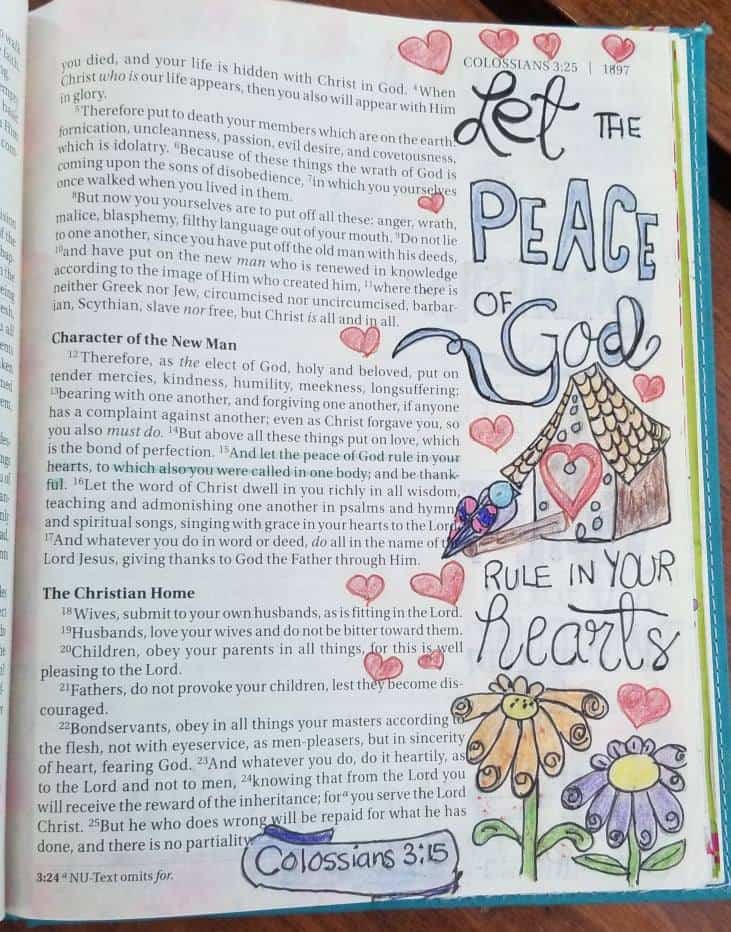 COLOSSIANS 3:25 | 1897
you died, and your life is hidden with Christ in God. 4When
Christ who is our life appears, then you also will appear with Him
in glory.
5Therefore put to death your members which are on the earth:
fornication, uncleanness, passion, evil desire, and covetousness,
which is idolatry. 6Because of these things the wrath of God is
coming upon the sons of disobedience, 7in which you yourselves
once walked when you lived in them.
8But now you yourselves are to put off all these: anger, wrath,
malice, blasphemy, filthy language out of your mouth. 9Do not lie
to one another, since you have put off the old man with his deeds,
10and have put on the new man who is renewed in knowledge
according to the image of Him who created him, 11where there is
neither Greek nor Jew, circumcised nor uncircumcised, barbar-
ian, Scythian, slave nor free, but Christ is all and in all.
Character of the New Man
12Therefore, as the elect of God, holy and beloved, put on
tender mercies, kindness, humility, meekness, longsuffering;
13bearing with one another, and forgiving one another, if anyone
has a complaint against another; even as Christ forgave you, so
you also must do. 14But above all these things put on love, which
is the bond of perfection. 15And let the peace of God rule in your
hearts, to which also you were called in one body; and be thank-
ful. 16Let the word of Christ dwell in you richly in all wisdom,
teaching and admonishing one another in psalms and hymns
and spiritual songs, singing with grace in your hearts to the Lord.
17And whatever you do in word or deed, do all in the name of the
Lord Jesus, giving thanks to God the Father through Him.
The Christian Home
18Wives, submit to your own husbands, as is fitting in the Lord.
19Husbands, love your wives and do not be bitter toward them.
20Children, obey your parents in all things, for this is well
pleasing to the Lord.
21Fathers, do not provoke your children, lest they become dis-
couraged.
22Bondservants, obey in all things your masters according to
the flesh, not with eyeservice, as men-pleasers, but in sincerity
of heart, fearing God. 23And whatever you do, do it heartily, as
to the Lord and not to men, 24knowing that from the Lord you
will receive the reward of the inheritance; for a you serve the Lord
Christ. 25But he who does wrong will be repaid for what he has
done, and there is no partiality.
3:24 a NU-Text omits for.
Let THE
PEACE
OF God
RULE IN YOUR
hearts
Colossians 3:15